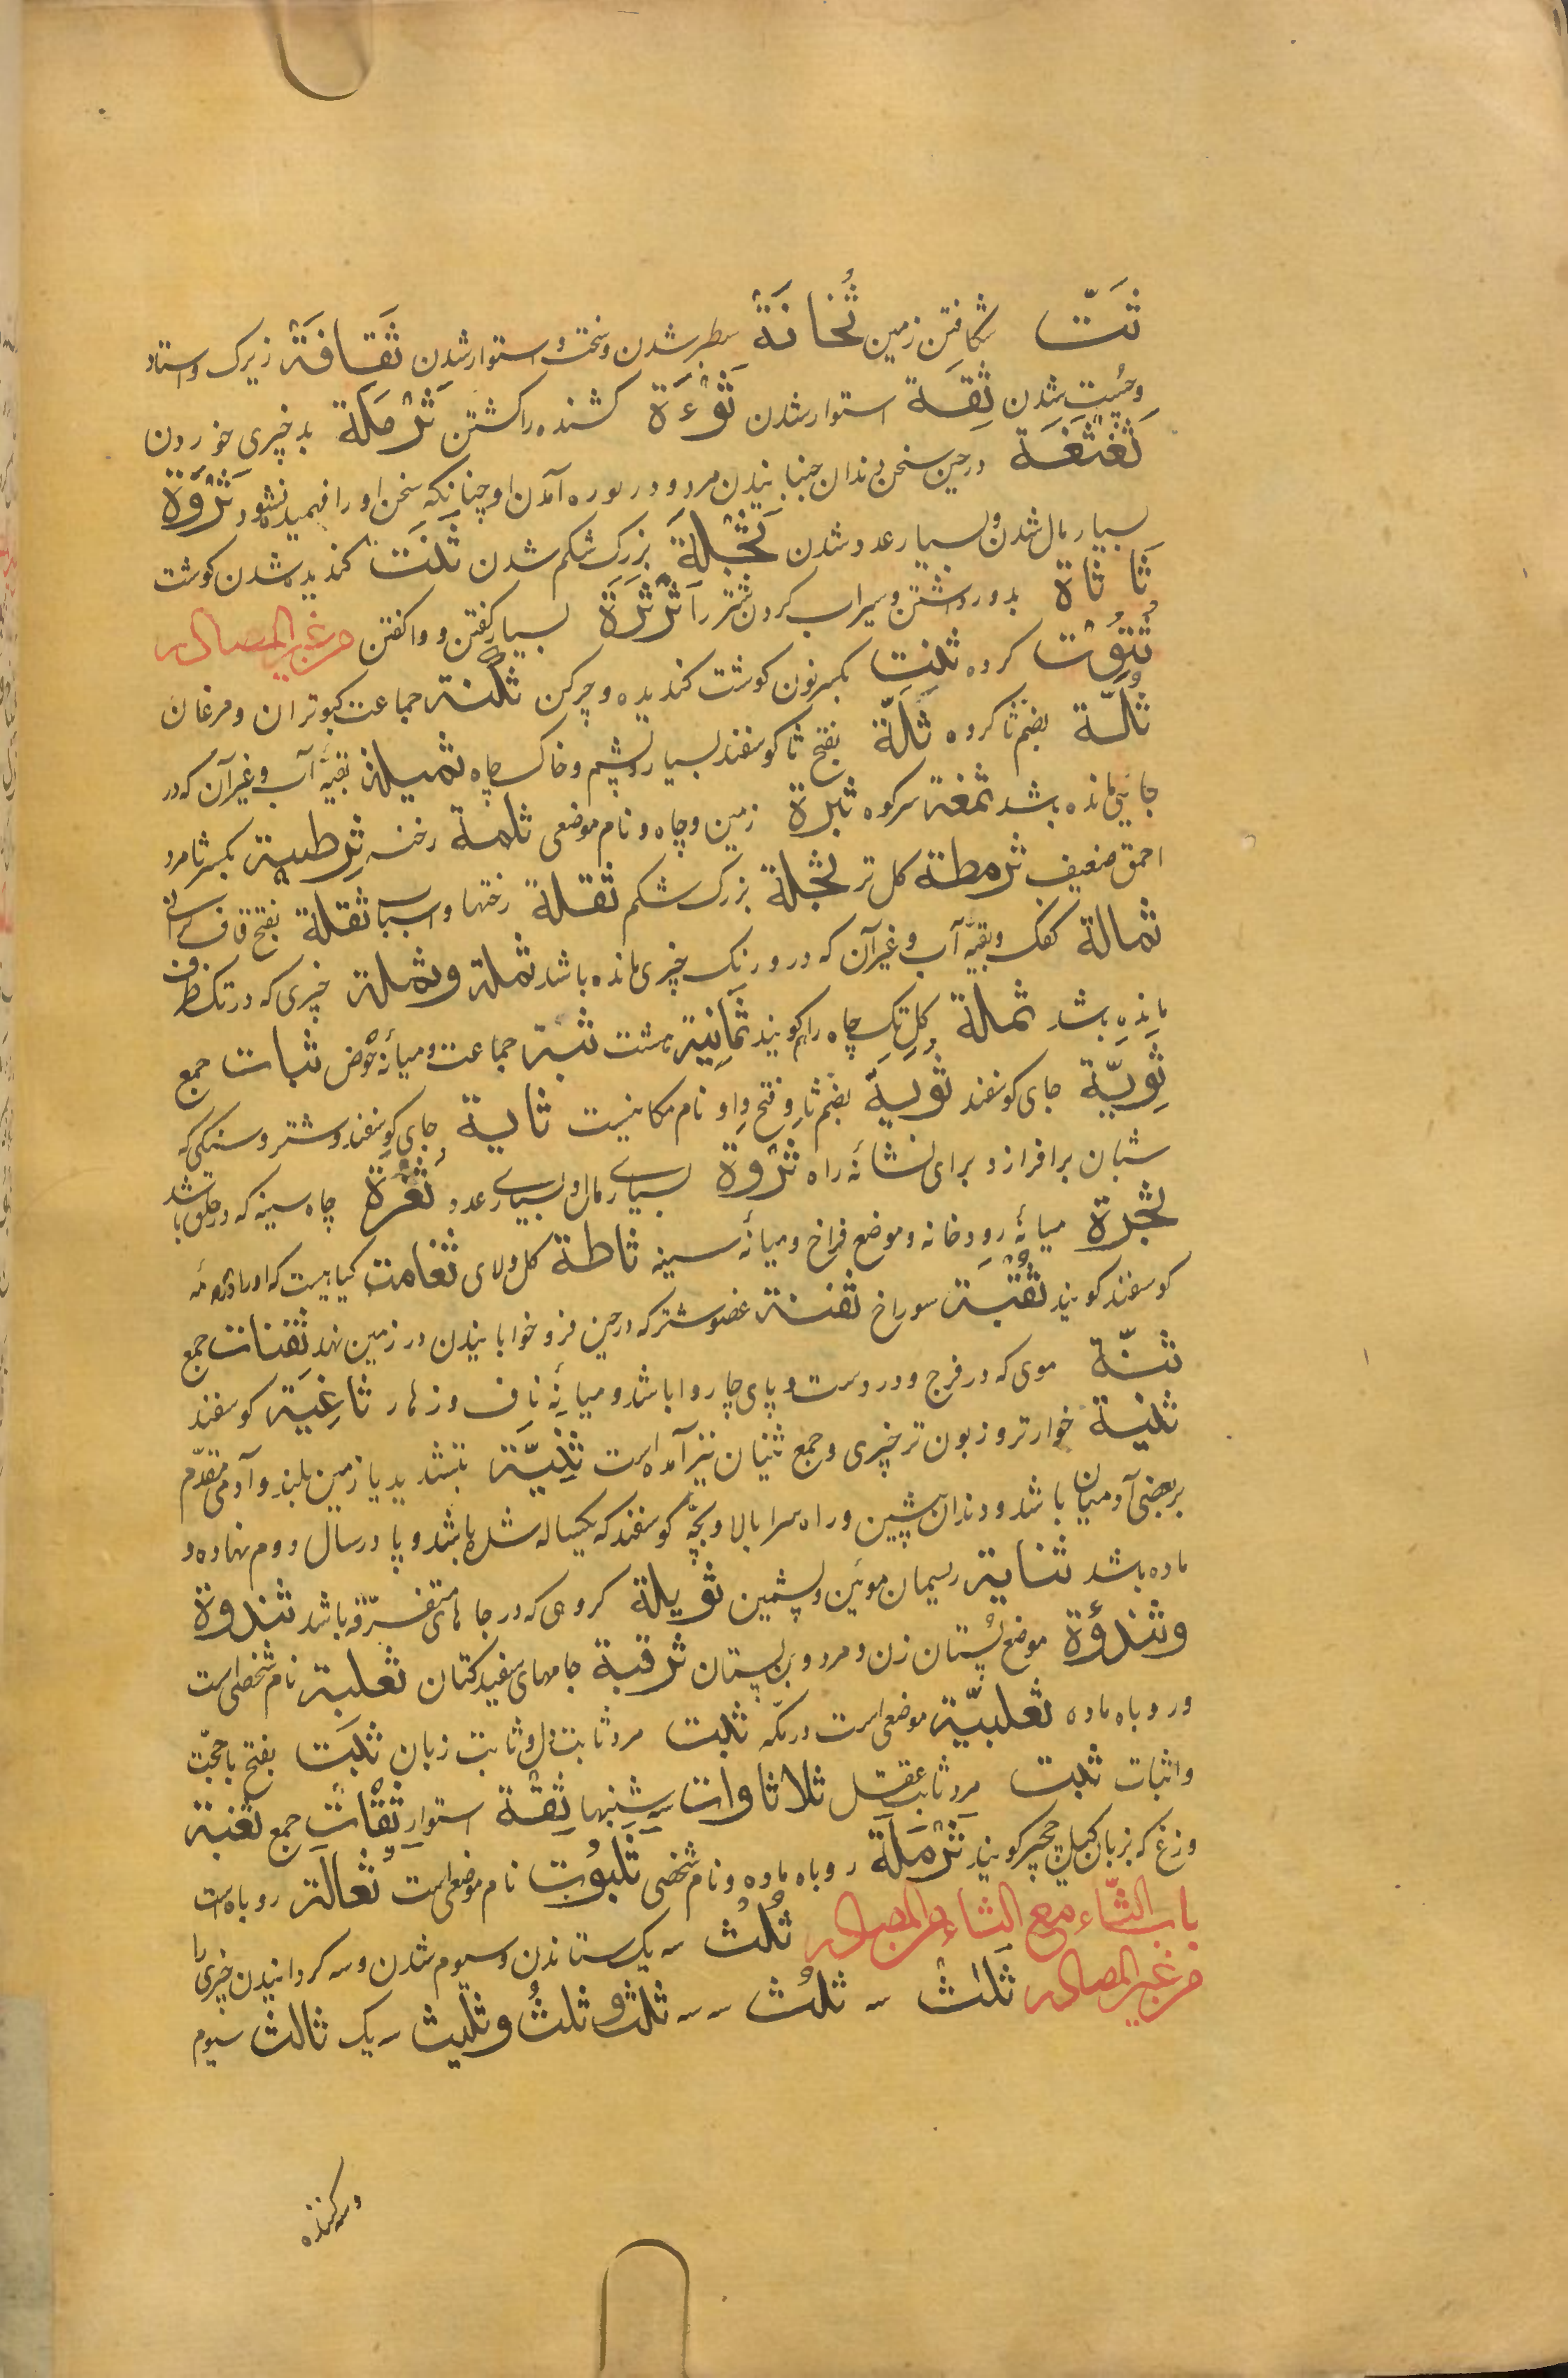 ثَتّ شکافتن زمین ثُخانَة سطبر شدن و سخت و استوار شدن ثَقافَة زیرک و استاد
و چست شدن ثِقَة استوار شدن ثَوْءَة کشنده را کشتن ثَرْمَلَة بد چیزی خوردن
ثَغثَغَة در حین سخن دندان جنبانیدن مرد و در آمدن او چنانکه سخن او را فهمیده نشود ثَرْوَة
بسیار مال شدن و بسیار عدد شدن ثَجْلَة بزرک شکم شدن ثَنَت کندیده شدن کوشت
ثَاثَاة بدور داشتن و سیراب کردن شتر را ثَرْثَرَة بسیار کفتن و واکفتن من غیر المصادر
کروه ثَنِت بکسر نون کوشت کندیده و چرکن ثکنة جماعت کبوتران و مرغان
ثُلّة بضم ثا کروه ثَلّة بفتح ثا کوسفند بسیار و پشم و خاک چاه ثمیلة بقیه آب و غیر آن که در
جائی مانده باشد ثمغة سرکوه ثبرة زمین و چاه و نام موضعی ثلمة رخنه ثِرطئة بکسر ثا مرد
احمق ضعیف ثرمطة کل تر ثجلة بزرک شکم ثقلة رختها و اسباب ثقلة بفتح قاف کرانی
ثمالة کفک و بقیه آب و غیر آن که در و در تک چیزی مانده باشد ثملة و ثملة چیزی که در تک ظرف
مانده باشد ثملة و کل تک چاه را هم کویند ثمانیة هشت ثبة جماعت و میانهٔ حوض ثبات جمع
ثِویّة جای کوسفند ثویة بضم ثا و فتح واو نام مکانیست ثایة جای کوسفند و شتر و سنکی که
شبان برافرازد برای نشانهٔ راه ثروة بسیاری مال و بسیاری عدد ثغرة چاه سینه که در حلق باشد
ثجرة میانهٔ رودخانه و موضع فراخ و میانهٔ سینه ثاطة کل و لای ثغامة کیاهیست که او را درمنه
کوسفند کویند ثقبة سوراخ ثفنة عضو شتر که در حین فرو خوابانیدن در زمین نهد ثفنات جمع
ثنّة موی که در فرج و در دست و پای چاروا باشد و میانهٔ ناف و زهار ثاغیة کوسفند
ثنیة خوارتر و زبون تر چیزی و جمع ثنیان نیز آمده است ثنیّة بتشدید یا زمین بلند و آدمی مقدّم
بر بعضی آدمیان باشد و دندان پیشین و راه سرا بالا و بچّه کوسفند که یکساله شده باشد و پا در سال دوم نهاده و
ماده باشد ثنایة ریسمان موئین و پشمین ثویلة کروهی که در جاهای متفرّقه باشد ثندوة
و ثندؤة موضع پستان زن و مرد و بن پستان ثرقبة جامهای سفید کتان ثعلبة نام شخصی است
و روباه ماده ثعلبیّة موضعی است در مکّه ثبت مرد ثابت دل و ثابت زبان ثبَت بفتح با حجّت
و اثبات ثبت مرد ثابت عقل ثلاثاوات سه شنبها ثِقَة استوار ثقات جمع ثغبة
وزغ که بزبان کیل کویند ثَرْمَلَة روباه ماده و نام شخصی ثَلبُوت نام موضعی است ثُعالَة روباه است
باب الثّاء مع الثاء من المصادر ثُلْث سه یک ستاندن و سیوم شدن و سه کردانیدن چیزی را
من غیر المصادر ثَلٰث سه ثلُث سه سه ثلث و ثلُث و ثلیث سه یک ثالث سیوم
و سه کننده